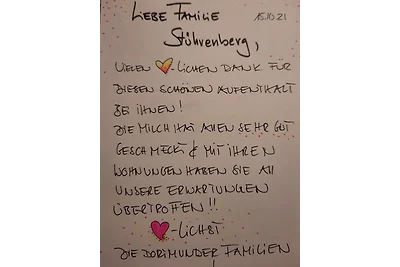 Liebe Familie 15.10.21
Stührenberg,
Vielen ♥-lichen Dank für
diesen schönen Aufenthalt
be Ihnen!
Die Milch hat allen sehr gut
geschmeckt & mit Ihren
Wohnungen haben Sie all
unsere Erwartungen
übertroffen!!
♥-lichst
Die Dortmunder Familien